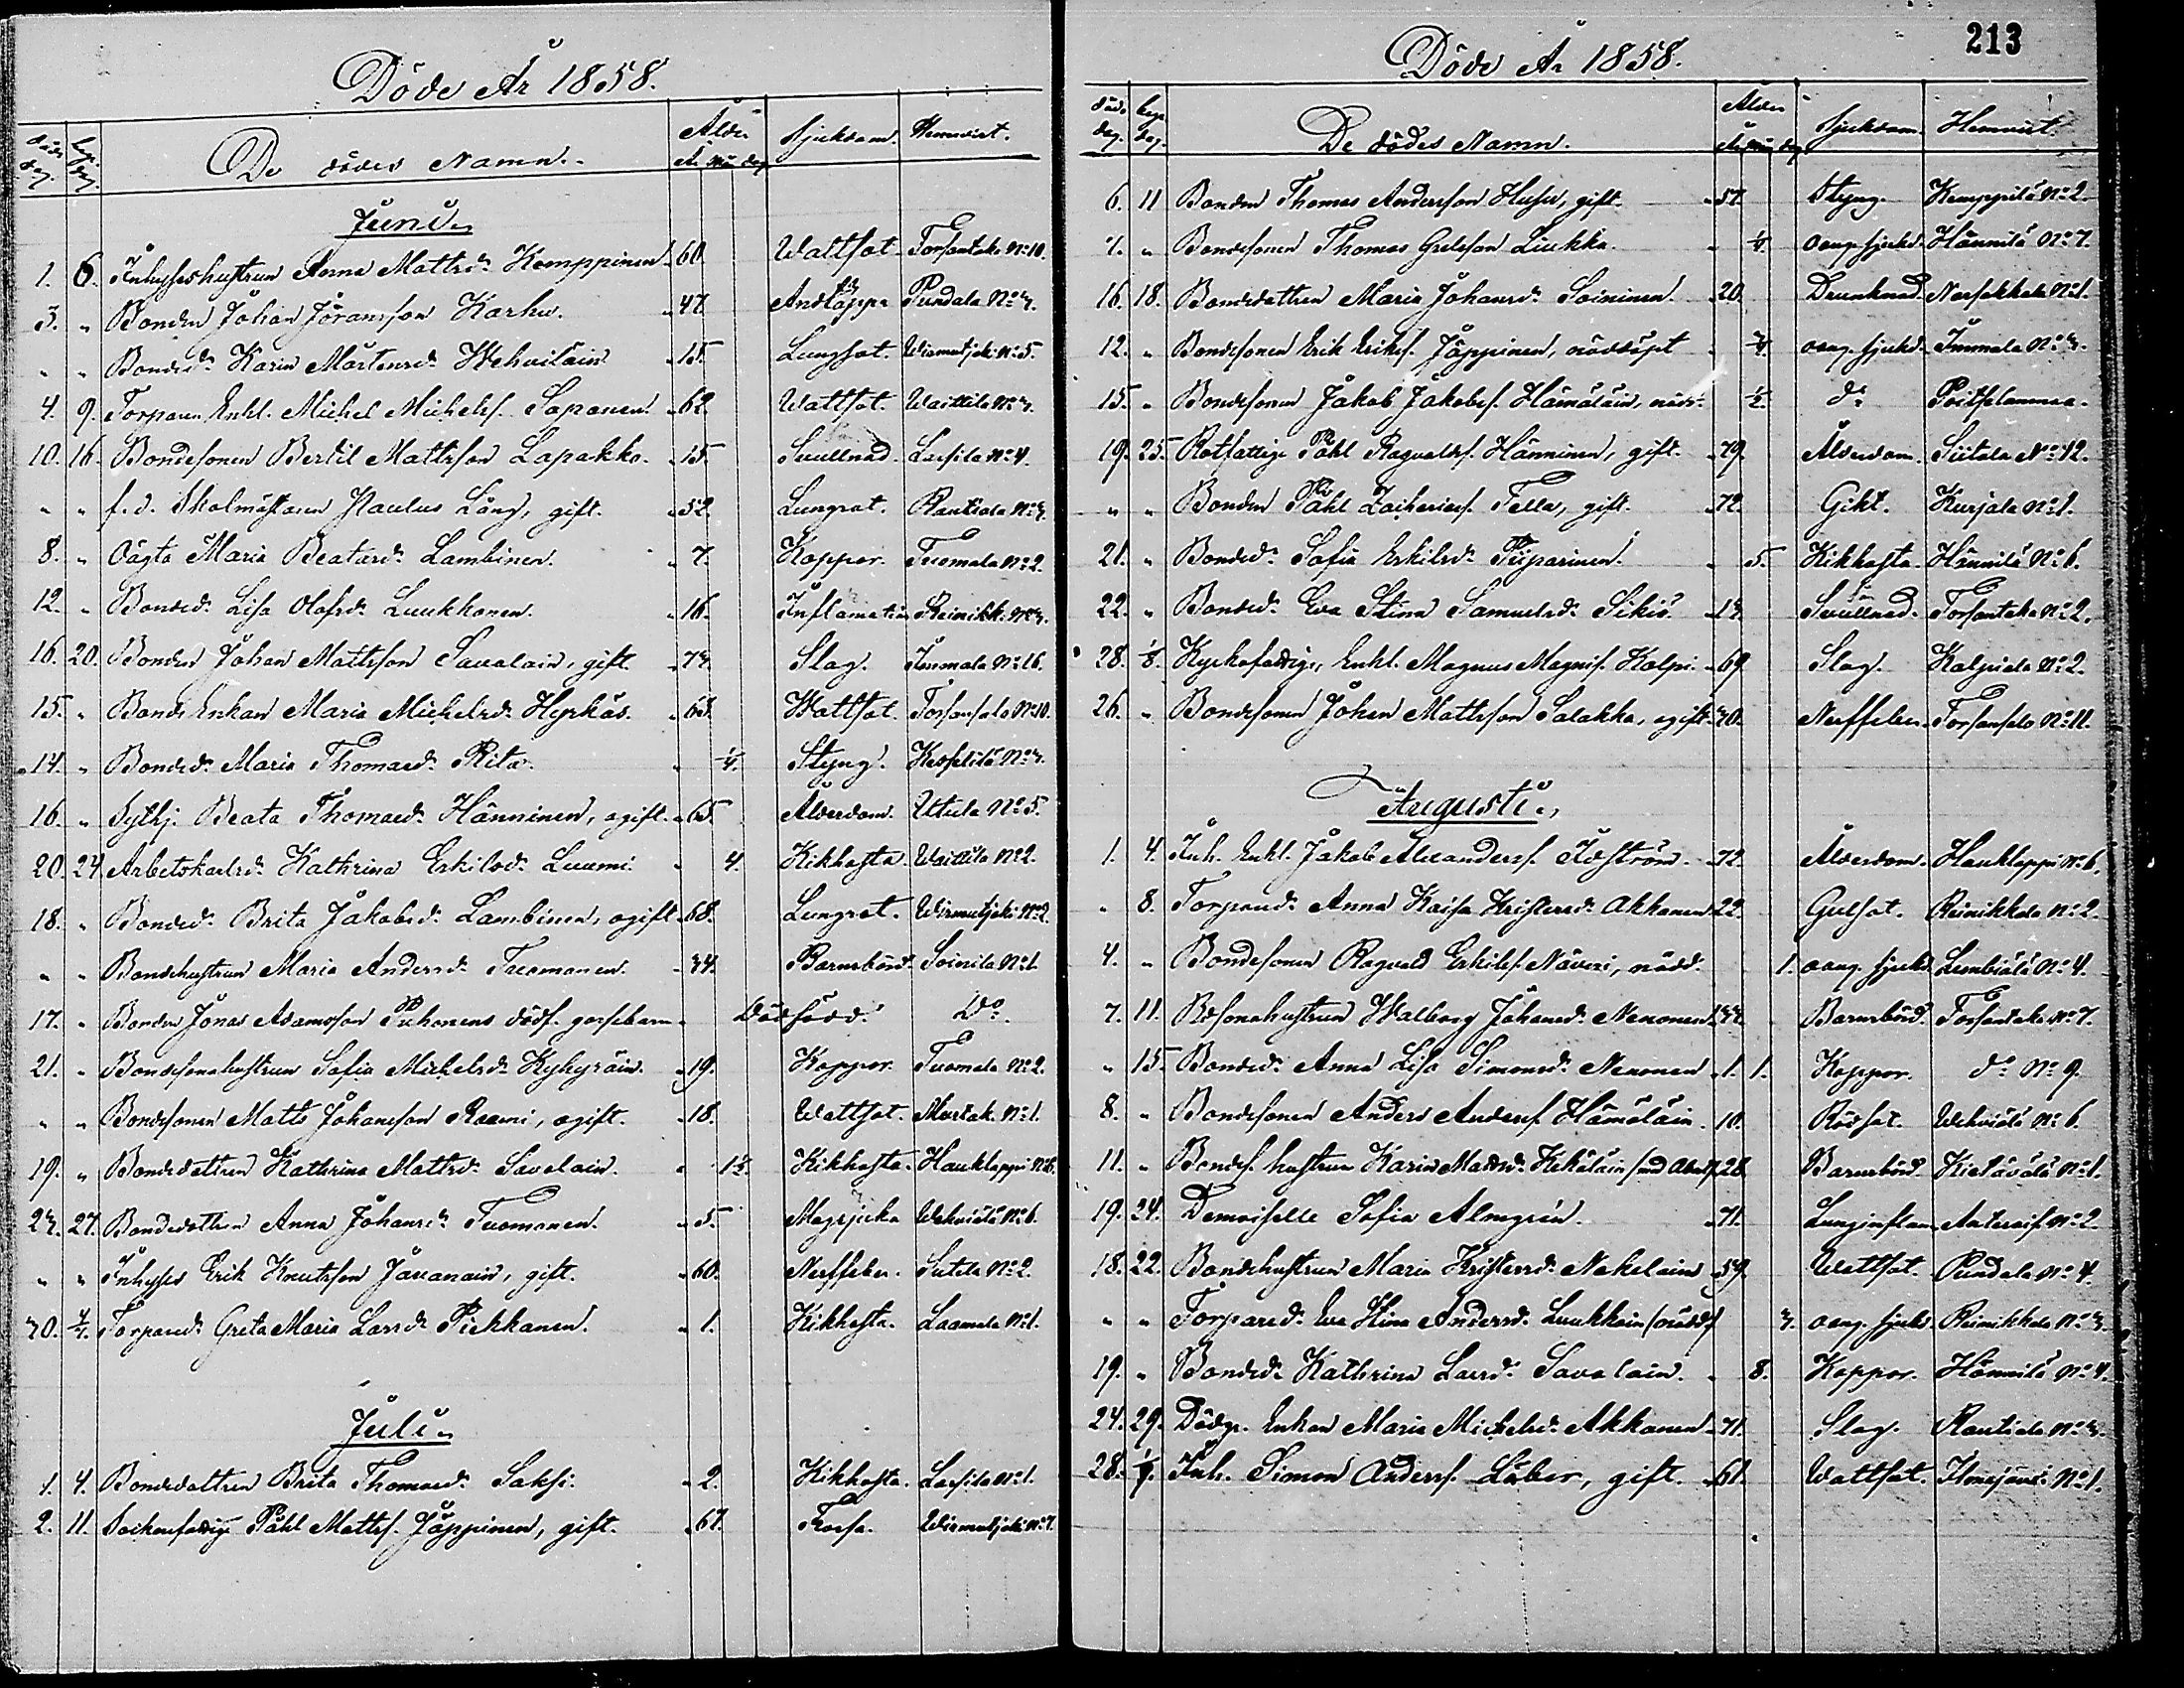 Döde År 1858.
död. dag. beg. dag. De dödes Namn. Ålder År Mån Dag Sjukdom. Hemvist.
Juni.
1. 6. Inhyseshustrun Anna Mattsdr Kemppinen 60. Wattsot. Torsantaka No 10.
3. " Bonden Johan Göransson Karhu. 47. Andtäppa Pundala No 3.
" " Bonded. Karin Mårtensdr Wehviläin 15. Lungsot. Wirmutjoki No 5.
4. 9. Torparen Enkl. Michel Michelss. Saponen. 62. Wattsot. Waittila No 3.
10. 16. Bondesonen Bertil Mattsson Lapakko. 15. Svullnad. Lassila No 4.
" " f.d. Skolmästaren Paulus Lång, gift. 52. Lungsot. Rautiala No 3.
8. " Oägta Maria Beatasdr Lambinen. 7. Koppor. Tuomala No 2.
12. " Bonded. Lisa Olofsdr Luukkonen. 16. Inflamation Reinikk. No 3.
16. 20. Bonden Johan Mattsson Savalain, gift. 73. Slag. Immala No 16.
15. " Bonde Enkan Maria Michelsdr Hyrkäs. 63. Wattsot. Torsansalo No 10.
14. " Bonded. Maria Thomasdr Rita. " 1/4. Styng. Kesselilä No 3.
16. " Sythj. Beata Thomasdr Hänninen, ogift. 65. Ålderdom. Utula No 5.
20. 24. Arbetskarlsd. Kathrina Eskilsdr Luumi. " 4. Kikhosta Waittila No 2.
18. " Bonded. Brita Jakobsdr Lambinen, ogift. 68. Lungsot. Wirmutjoki No 2.
" " Bondehustrun Maria Andersdr Tuomanen. 34. Barnsbörd. Soinila No 1.
17. " Bonden Jonas Adamsson Puhonens dödf. gossebarn. Dödfödd. Do.
21. " Bondesonahustrun Sofia Michelsdr Kyhyräin. 19. Koppor. Tuomala No 2.
" " Bondesonen Matts Johansson Raemi, ogift. 18. Wattsot. Mertak. No 1.
19. " Bondedottren Kathrina Mattsdr Savolain. " 1 1/2. Kikhosta. Hauklappi No 6.
23. 27. Bondedottren Anna Johansdr Tuomanen. 5. Magsjuka Wehviälä No 6.
" " Inhyses Erik Knutsson Javanain, gift. 60. Nerffeber. Sutela No 2.
30. 4/7. Torpared. Greta Maria Larsdr Piekkanen. 1. Kikhosta. Laamala No 1.
Juli.
1. 4. Bondedottren Brita Thomasdr Saksi. 2. Kikhosta. Lassila No 1.
2. 11. Sockenfattige Påhl Mattss. Jäppinen, gift. 67. Frossa. Wirmutjoki No 7.
213
Döde År 1858.
död. dag. beg. dag. De dödes Namn. Ålder År Mån Dag Sjukdom. Hemvist.
6. 11 Bonden Thomas Andersson Husu, gift. 57. Styng. Kemppilä No 2.
7. " Bondesonen Thomas Gretsson Liukko. " 1/4. oang. sjukd. Hännilä No 7.
16. 18. Bondedottren Maria Johansdr Soininen. 20. Drunknad. Narsakkala No 1.
12. " Bondesonen Erik Erikss. Jäppinen, nöddöpt " 3/4. oang. sjukd. Immala No 3.
15. " Bondesonen Jakob Jakobss. Hämäläin, nödd. 1/2. do Poitsilanmaa.
19. 25. Rotfattige Påhl Ragvaldss. Hänninen, gift. 79. Ålderdom. Siitala No 12.
" " Bonden Påhl Zachariess. Tella, gift. 72. Gikt. Kurjala No 1.
21. " Bonded. Sofia Eskilsdr Piiparinen. " 5. Kikhosta. Hännilä No 6.
22. " Bonded. Eva Stina Samuelsdr Sikiö. 13. Svullnad. Torsantaka No 2.
28. 1/8. Kyrkofattige, Enkl. Magnus Magnis. Kolpi. 69. Slag. Kalpiala No 2.
26. " Bondesonen Johan Mattsson Salakka, ogift. 30. Nerffeber. Torsansalo No 11.
Augusti.
1. 4. Inh. Enkl. Jakob Alexanderss. Åkström. 72. Ålderdom. Hauklappi No 6.
" 8. Torpared. Anna Kaisa Kristersdr Akkanen 22. Gulsot. Reinikkala No 2.
4. " Bondesonen Ragvald Eskilss. Näveri, nödd. 1. oang. sjukd. Lembiälä No 4.
7. 11. Bdsonahustrun Walborg Johansdr Nenonen 33. Barnsbörd. Torsantaka No 7.
" 15. Bonded. Anna Lisa Simonsdr Nenonen 1. 1. Koppor. do No 9.
8. " Bondesonen Anders Anderss. Hämäläin. 10. Rödsot. Wehviälä No 6.
11. " Bondes. hustrun Karin Madsdr Kekäläin 28. Barnsbörd. Kietävälä No 1.
19. 24. Demoiselle Sofia Almgrén. 71. Lunginflam. Anteroif. No 2.
18. 22. Bondehustrun Maria Kristersdr Nokelain 59. Wattsot. Pundala No 4.
" " Torpared. Eva Stina Andersdr Luukkain (nödd.) 3. oang. sjukd. Reinikkala No 3.
19. " Bonded. Kathrina Larsdr Savolain. " 8. Koppor. Hännilä No 4.
24. 29. Dödgr. Enkan Maria Michelsdr Akkanen 71. Slag. Rautiala No 3.
28. 1/9. Inh. Simon Anderss. Luber, gift. 61. Wattsot. Ilmajärvi No 1.